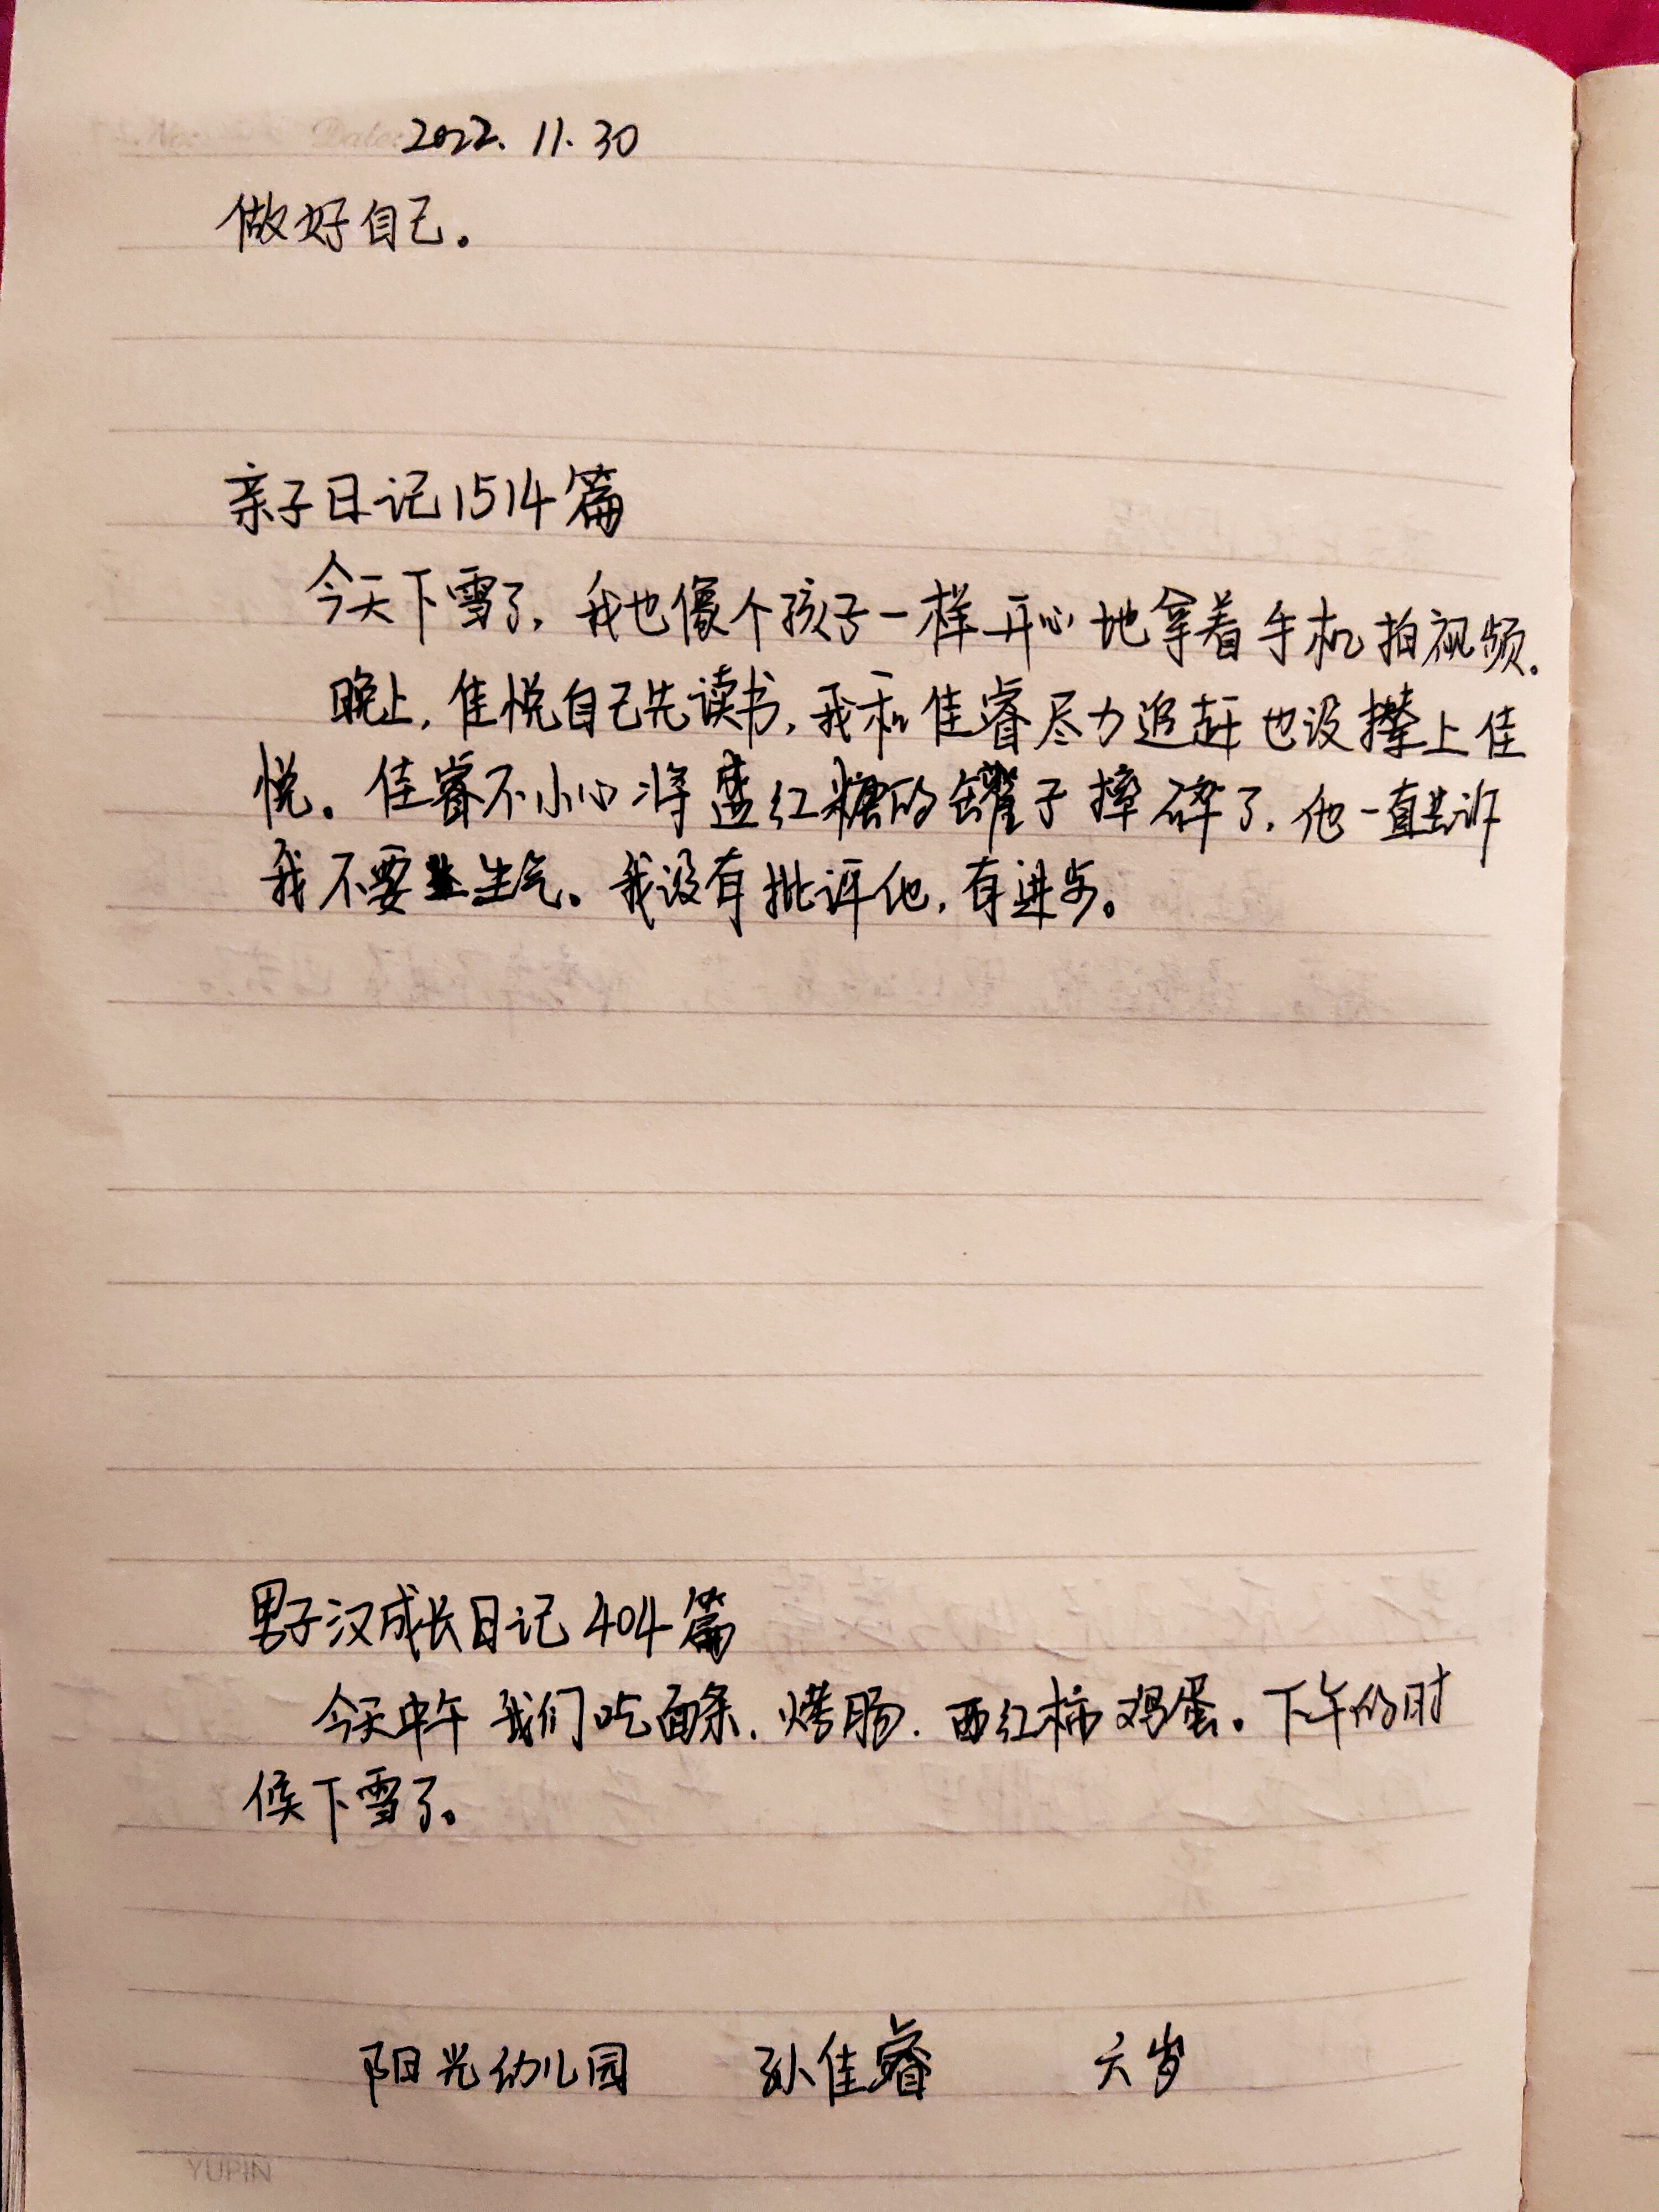 No: Date: 2022. 11. 30
做好自己。
亲子日记1514篇
今天下雪了,我也像个孩子一样开心地拿着手机拍视频.
晚上,佳悦自己先读书,我和佳睿尽力追赶也没撵上佳
悦。佳睿不小心将盛红糖的罐子摔碎了,他一直告诉
我不要生气。我没有批评他,有进步。
男子汉成长日记404篇
今天中午我们吃面条.烤肠.西红柿鸡蛋。下午的时
候下雪了。
阳光幼儿园 孙佳睿 六岁
YUPIN